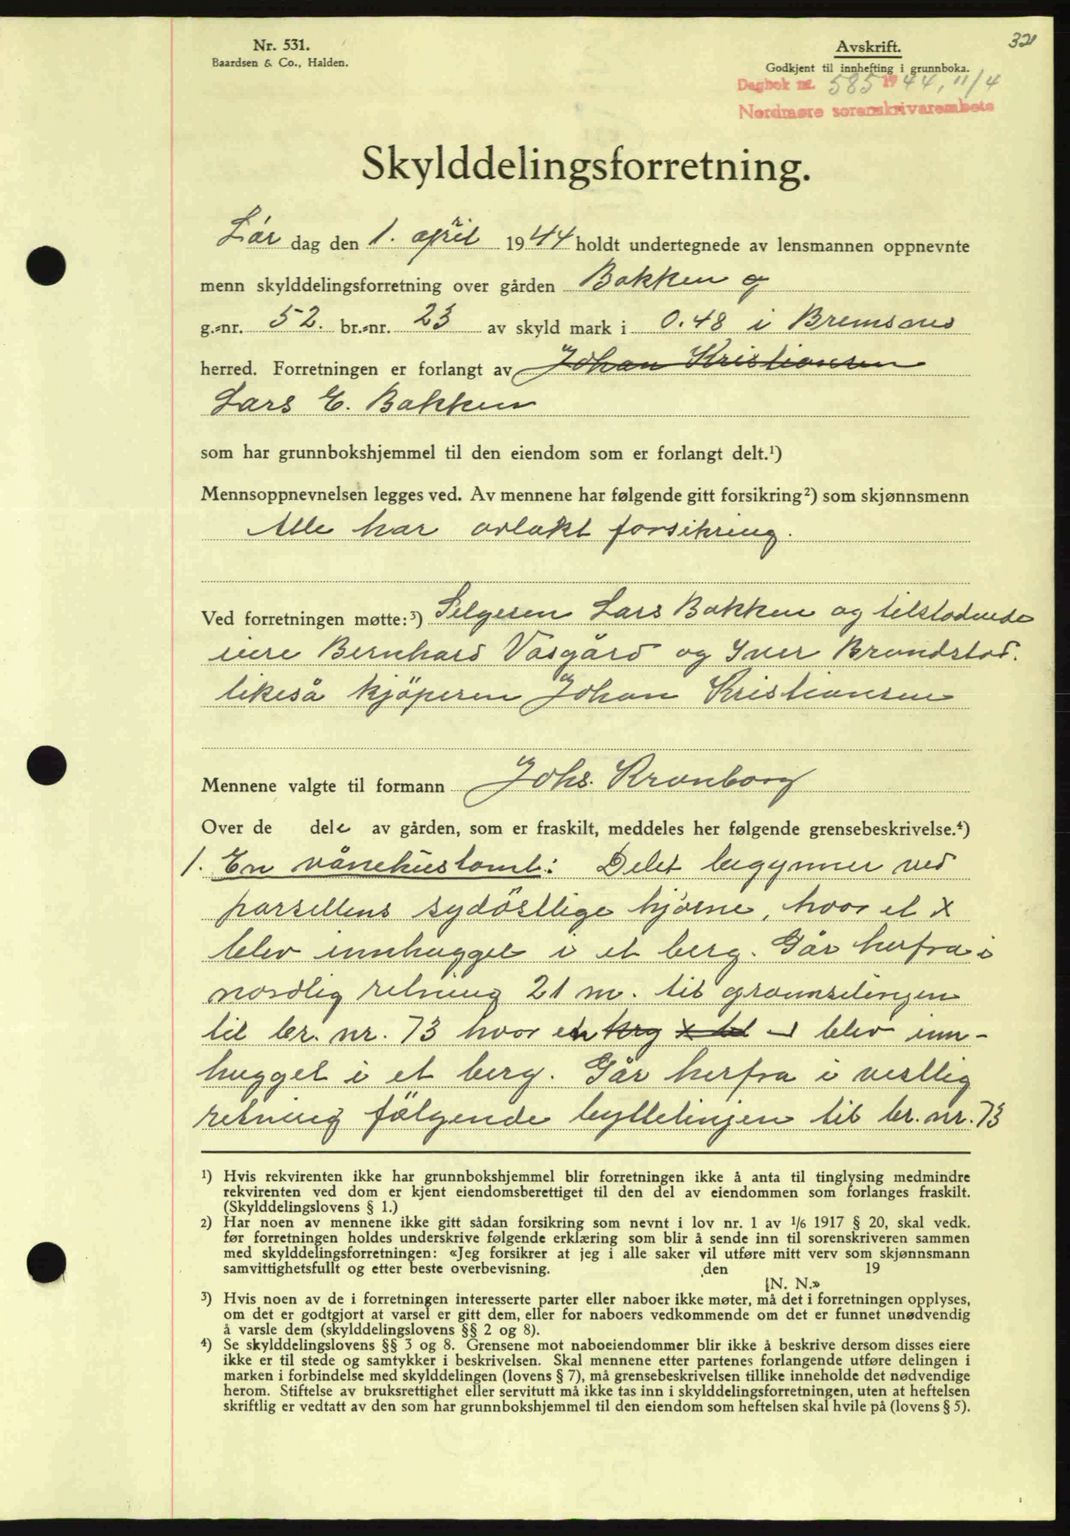 Nr. 531.
Baardsen & Co., Halden.
Avskrift.
Godkjent til innhefting i grunnboka.
321
Dagbok nr. 585 1944, 11/4
Nordmøre sorenskrivarembete
Skylddelingsforretning.
Lør dag den 1. april 1944 holdt undertegnede av lensmannen oppnevnte
menn skylddelingsforretning over gården Bakken og
g.-nr. 52. br.-nr. 23 av skyld mark i 0.48 i Bremsnes
herred. Forretningen er forlangt av Johan Kristiansen
Lars E. Bakken
som har grunnbokshjemmel til den eiendom som er forlangt delt.¹)
Mennsoppnevnelsen legges ved. Av mennene har følgende gitt forsikring²) som skjønnsmenn
Alle har avlakt forsikring.
Ved forretningen møtte:³) Selgeren Lars Bakken og tilstødende
eiere Bernhard Vasgård og Iver Brandstad.
likeså kjöperen Johan Kristiansen
Mennene valgte til formann Johs. Kranborg
Over de dele av gården, som er fraskilt, meddeles her følgende grensebeskrivelse.⁴)
1. En vånehustomt: Delet begynner ved
parsellens sydöstlige hjørne, hvor et x
blev innhugget i et berg. Går herfra i
nordlig retning 21 m. til grannselinjen
til br. nr. 73 hvor en krg x ⟂ blev inn-
hugget i et berg. Går herfra i vestlig
retning fölgende byttelinjen til br. nr. 73
¹) Hvis rekvirenten ikke har grunnbokshjemmel blir forretningen ikke å anta til tinglysing medmindre
rekvirenten ved dom er kjent eiendomsberettiget til den del av eiendommen som forlanges fraskilt.
(Skylddelingslovens § 1.)
²) Har noen av mennene ikke gitt sådan forsikring som nevnt i lov nr. 1 av 1/6 1917 § 20, skal vedk.
før forretningen holdes underskrive følgende erklæring som blir å sende inn til sorenskriveren sammen
med skylddelingsforretningen: «Jeg forsikrer at jeg i alle saker vil utføre mitt verv som skjønnsmann
samvittighetsfullt og etter beste overbevisning. den 19
[N. N.»
³) Hvis noen av de i forretningen interesserte parter eller naboer ikke møter, må det i forretningen opplyses,
om det er godtgjort at varsel er gitt dem, eller for naboers vedkommende om det er funnet unødvendig
å varsle dem (skylddelingslovens §§ 2 og 8).
⁴) Se skylddelingslovens §§ 3 og 8. Grensene mot naboeiendommer blir ikke å beskrive dersom disses eiere
ikke er til stede og samtykker i beskrivelsen. Skal mennene etter partenes forlangende utføre delingen i
marken i forbindelse med skylddelingen (lovens § 7), må grensebeskrivelsen tillike inneholde det nødvendige
herom. Stiftelse av bruksrettighet eller servitutt må ikke tas inn i skylddelingsforretningen, uten at heftelsen
skriftlig er vedtatt av den som har grunnbokshjemmel til den eiendom som heftelsen skal hvile på (lovens § 5).